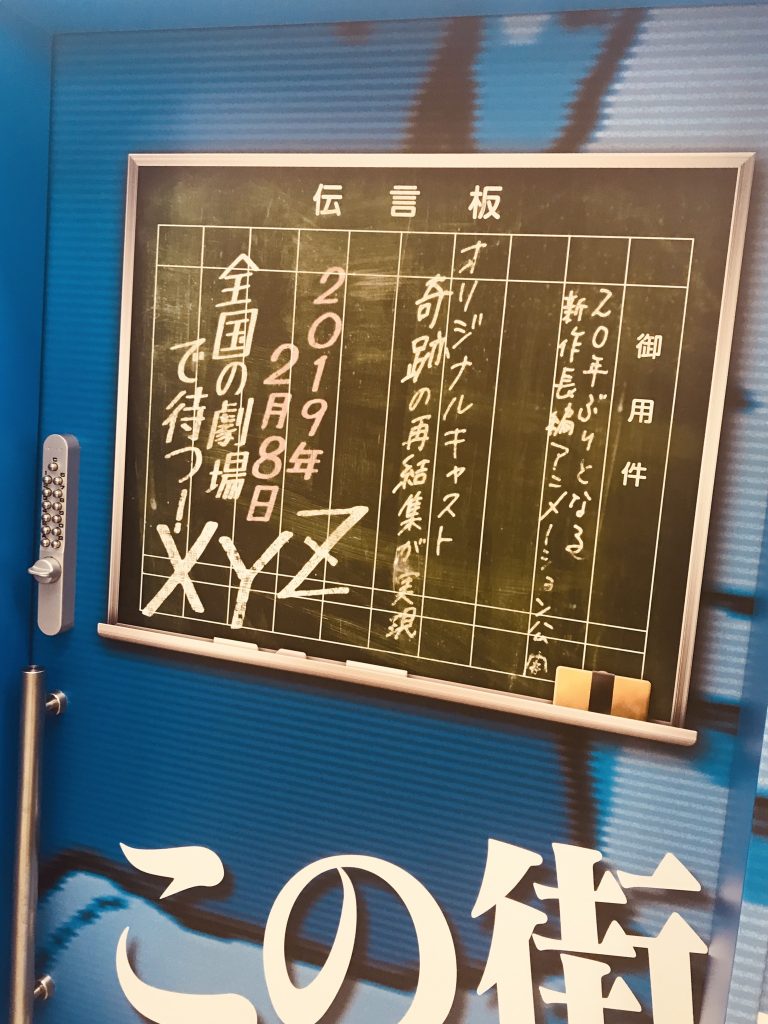 伝言板
御用件
20年ぶりとなる
新作長編アニメーション公開
オリジナルキャスト
奇跡の再結集が実現
2019年
2月8日
全国の劇場
で待つ!
XYZ
この街